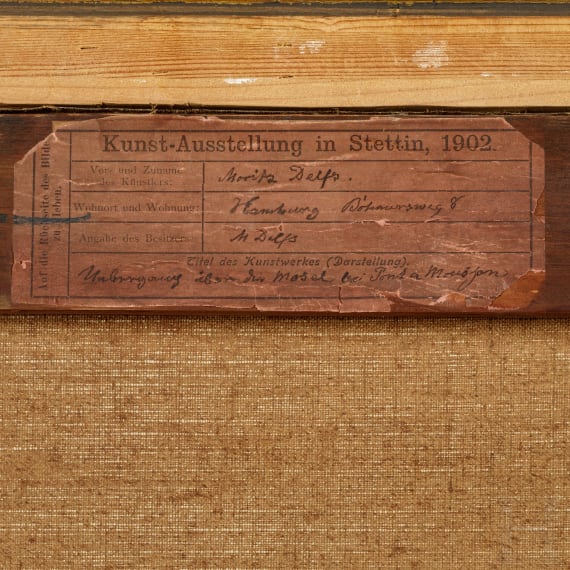 Auf die Rückseite des Bildes
zu kleben.
Kunst-Ausstellung in Stettin, 1902.
Vor- und Zuname
des Künstlers:
Moritz Delfs.
Wohnort und Wohnung:
Hamburg Böhmersweg 8
Angabe des Besitzers:
M Delfs
Titel des Kunstwerkes (Darstellung).
Uebergang über die Mosel bei Pont à Mousson